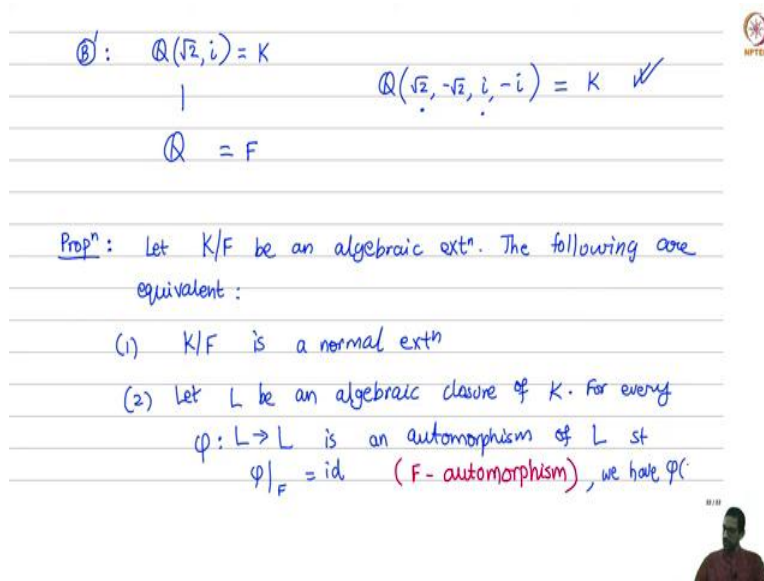 Ⓑ': Q(√2, i) = K
Q(√2, -√2, i, -i) = K
Q = F
NPTEL
Propⁿ: Let K/F be an algebraic extⁿ. The following are
equivalent:
(1) K/F is a normal extⁿ
(2) Let L be an algebraic closure of K. For every
φ: L→L is an automorphism of L st
φ|_F = id (F-automorphism), we have φ(